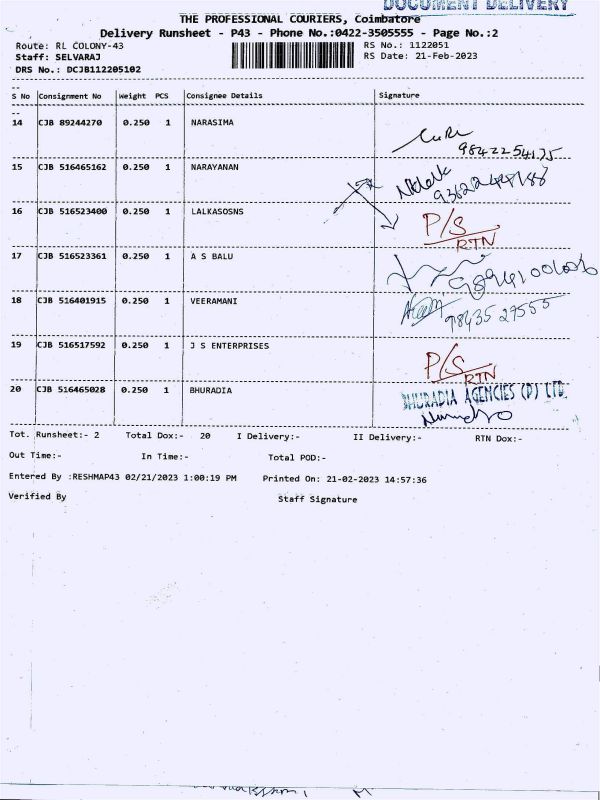 DOCUMENT DELIVERY
THE PROFESSIONAL COURIERS, Coimbatore
Delivery Runsheet - P43 - Phone No.:0422-3505555 - Page No.:2
Route: RL COLONY-43 RS No.: 1122051
Staff: SELVARAJ RS Date: 21-Feb-2023
DRS No.: DCJB112205102
S No Consignment No Weight PCS Consignee Details Signature
14 CJB 89244270 0.250 1 NARASIMA
9842254175
15 CJB 516465162 0.250 1 NARAYANAN
16 CJB 516523400 0.250 1 LALKASOSNS P/S
RTN
17 CJB 516523361 0.250 1 A S BALU
18 CJB 516401915 0.250 1 VEERAMANI
9843527555
19 CJB 516517592 0.250 1 J S ENTERPRISES P/S
RTN
20 CJB 516465028 0.250 1 BHURADIA BHURADIA AGENCIES (P) LTD.
Tot. Runsheet:- 2 Total Dox:- 20 I Delivery:- II Delivery:- RTN Dox:-
Out Time:- In Time:- Total POD:-
Entered By :RESHMAP43 02/21/2023 1:00:19 PM Printed On: 21-02-2023 14:57:36
Verified By Staff Signature